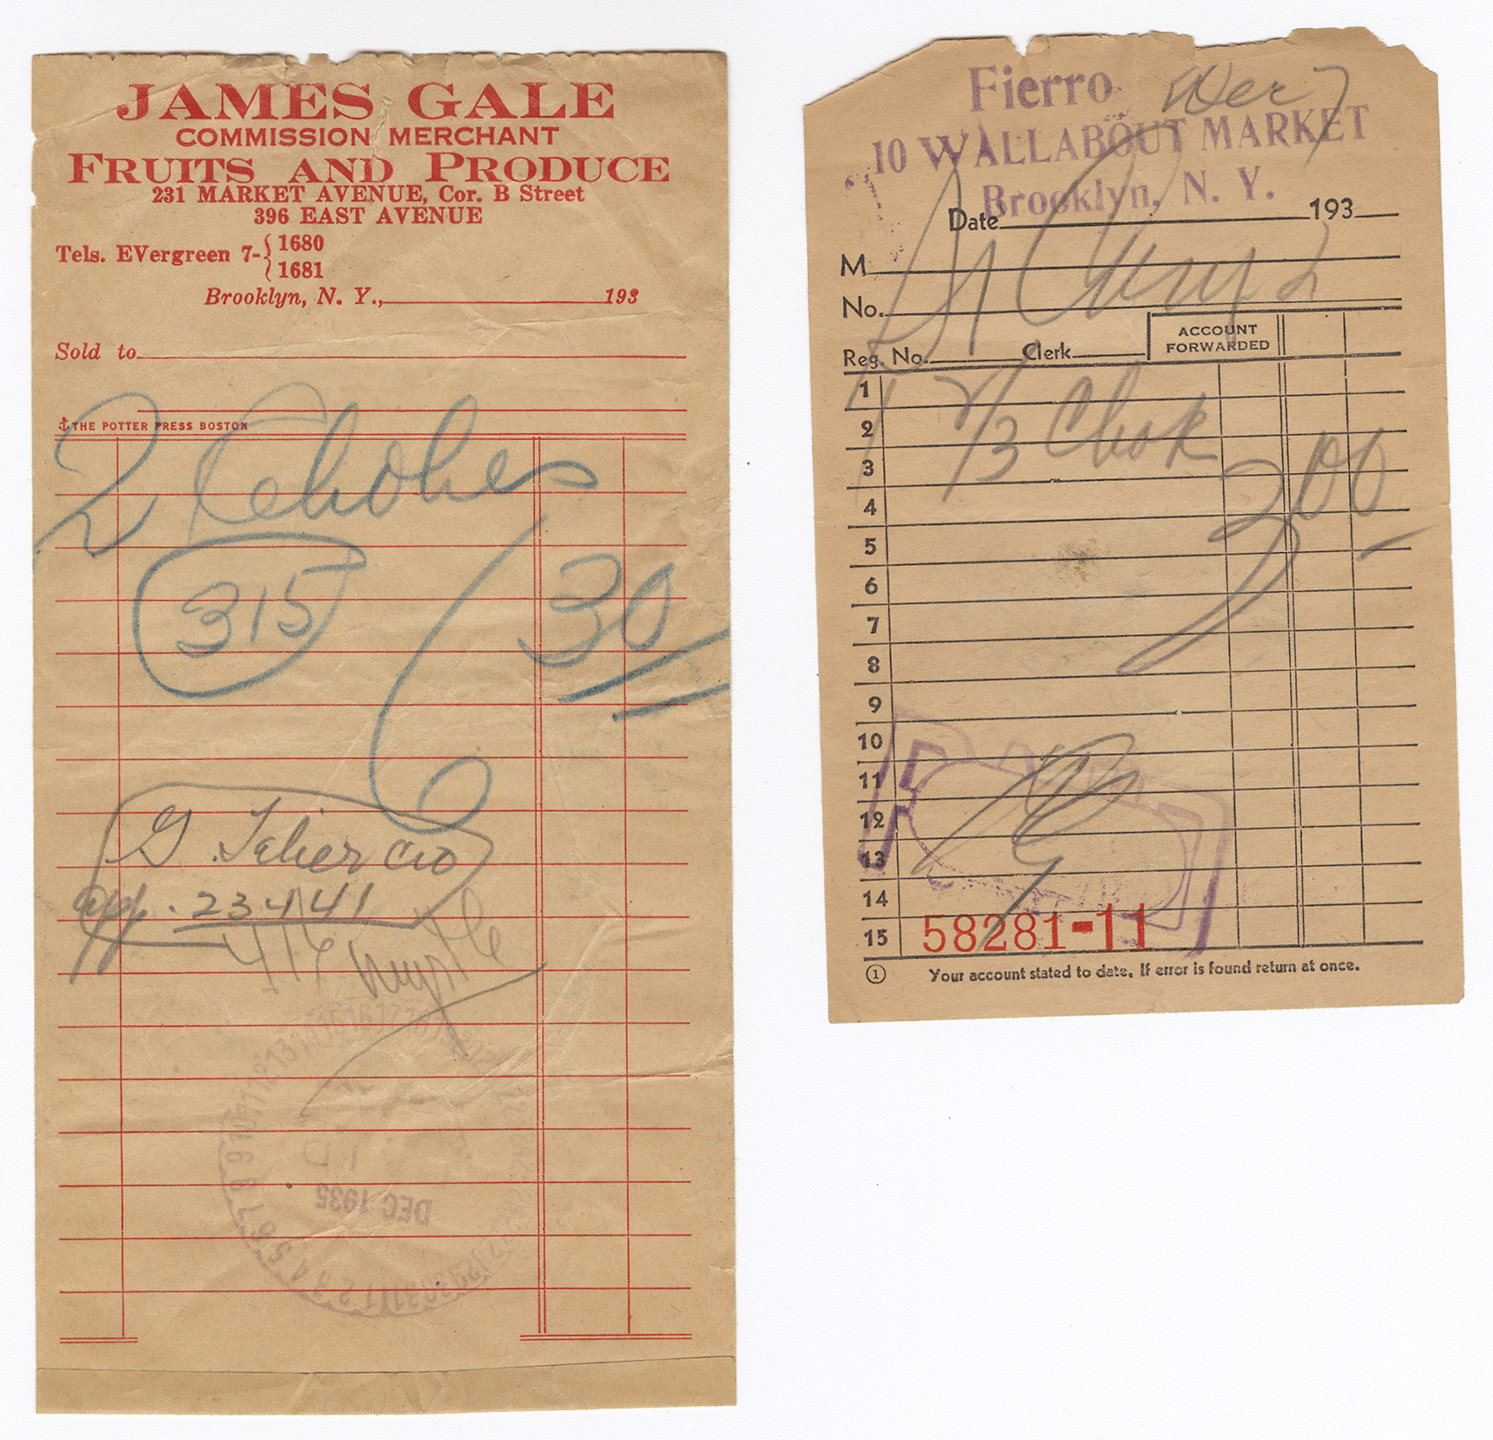 JAMES GALE
COMMISSION MERCHANT
FRUITS AND PRODUCE
231 MARKET AVENUE, Cor. B Street
396 EAST AVENUE
Tels. EVergreen 7-{1680
1681
Brooklyn, N. Y., 193
Sold to
THE POTTER PRESS BOSTON
2 Chokes
315
6 30
app. 23441
DEC 1935
Fierro
10 WALLABOUT MARKET
Brooklyn, N. Y.
Date 193
M
No.
Reg. No. Clerk ACCOUNT
FORWARDED
1
2
3
4
5
6
7
8
9
10
11
12
13
14
15 58281-11
1 Your account stated to date. If error is found return at once.